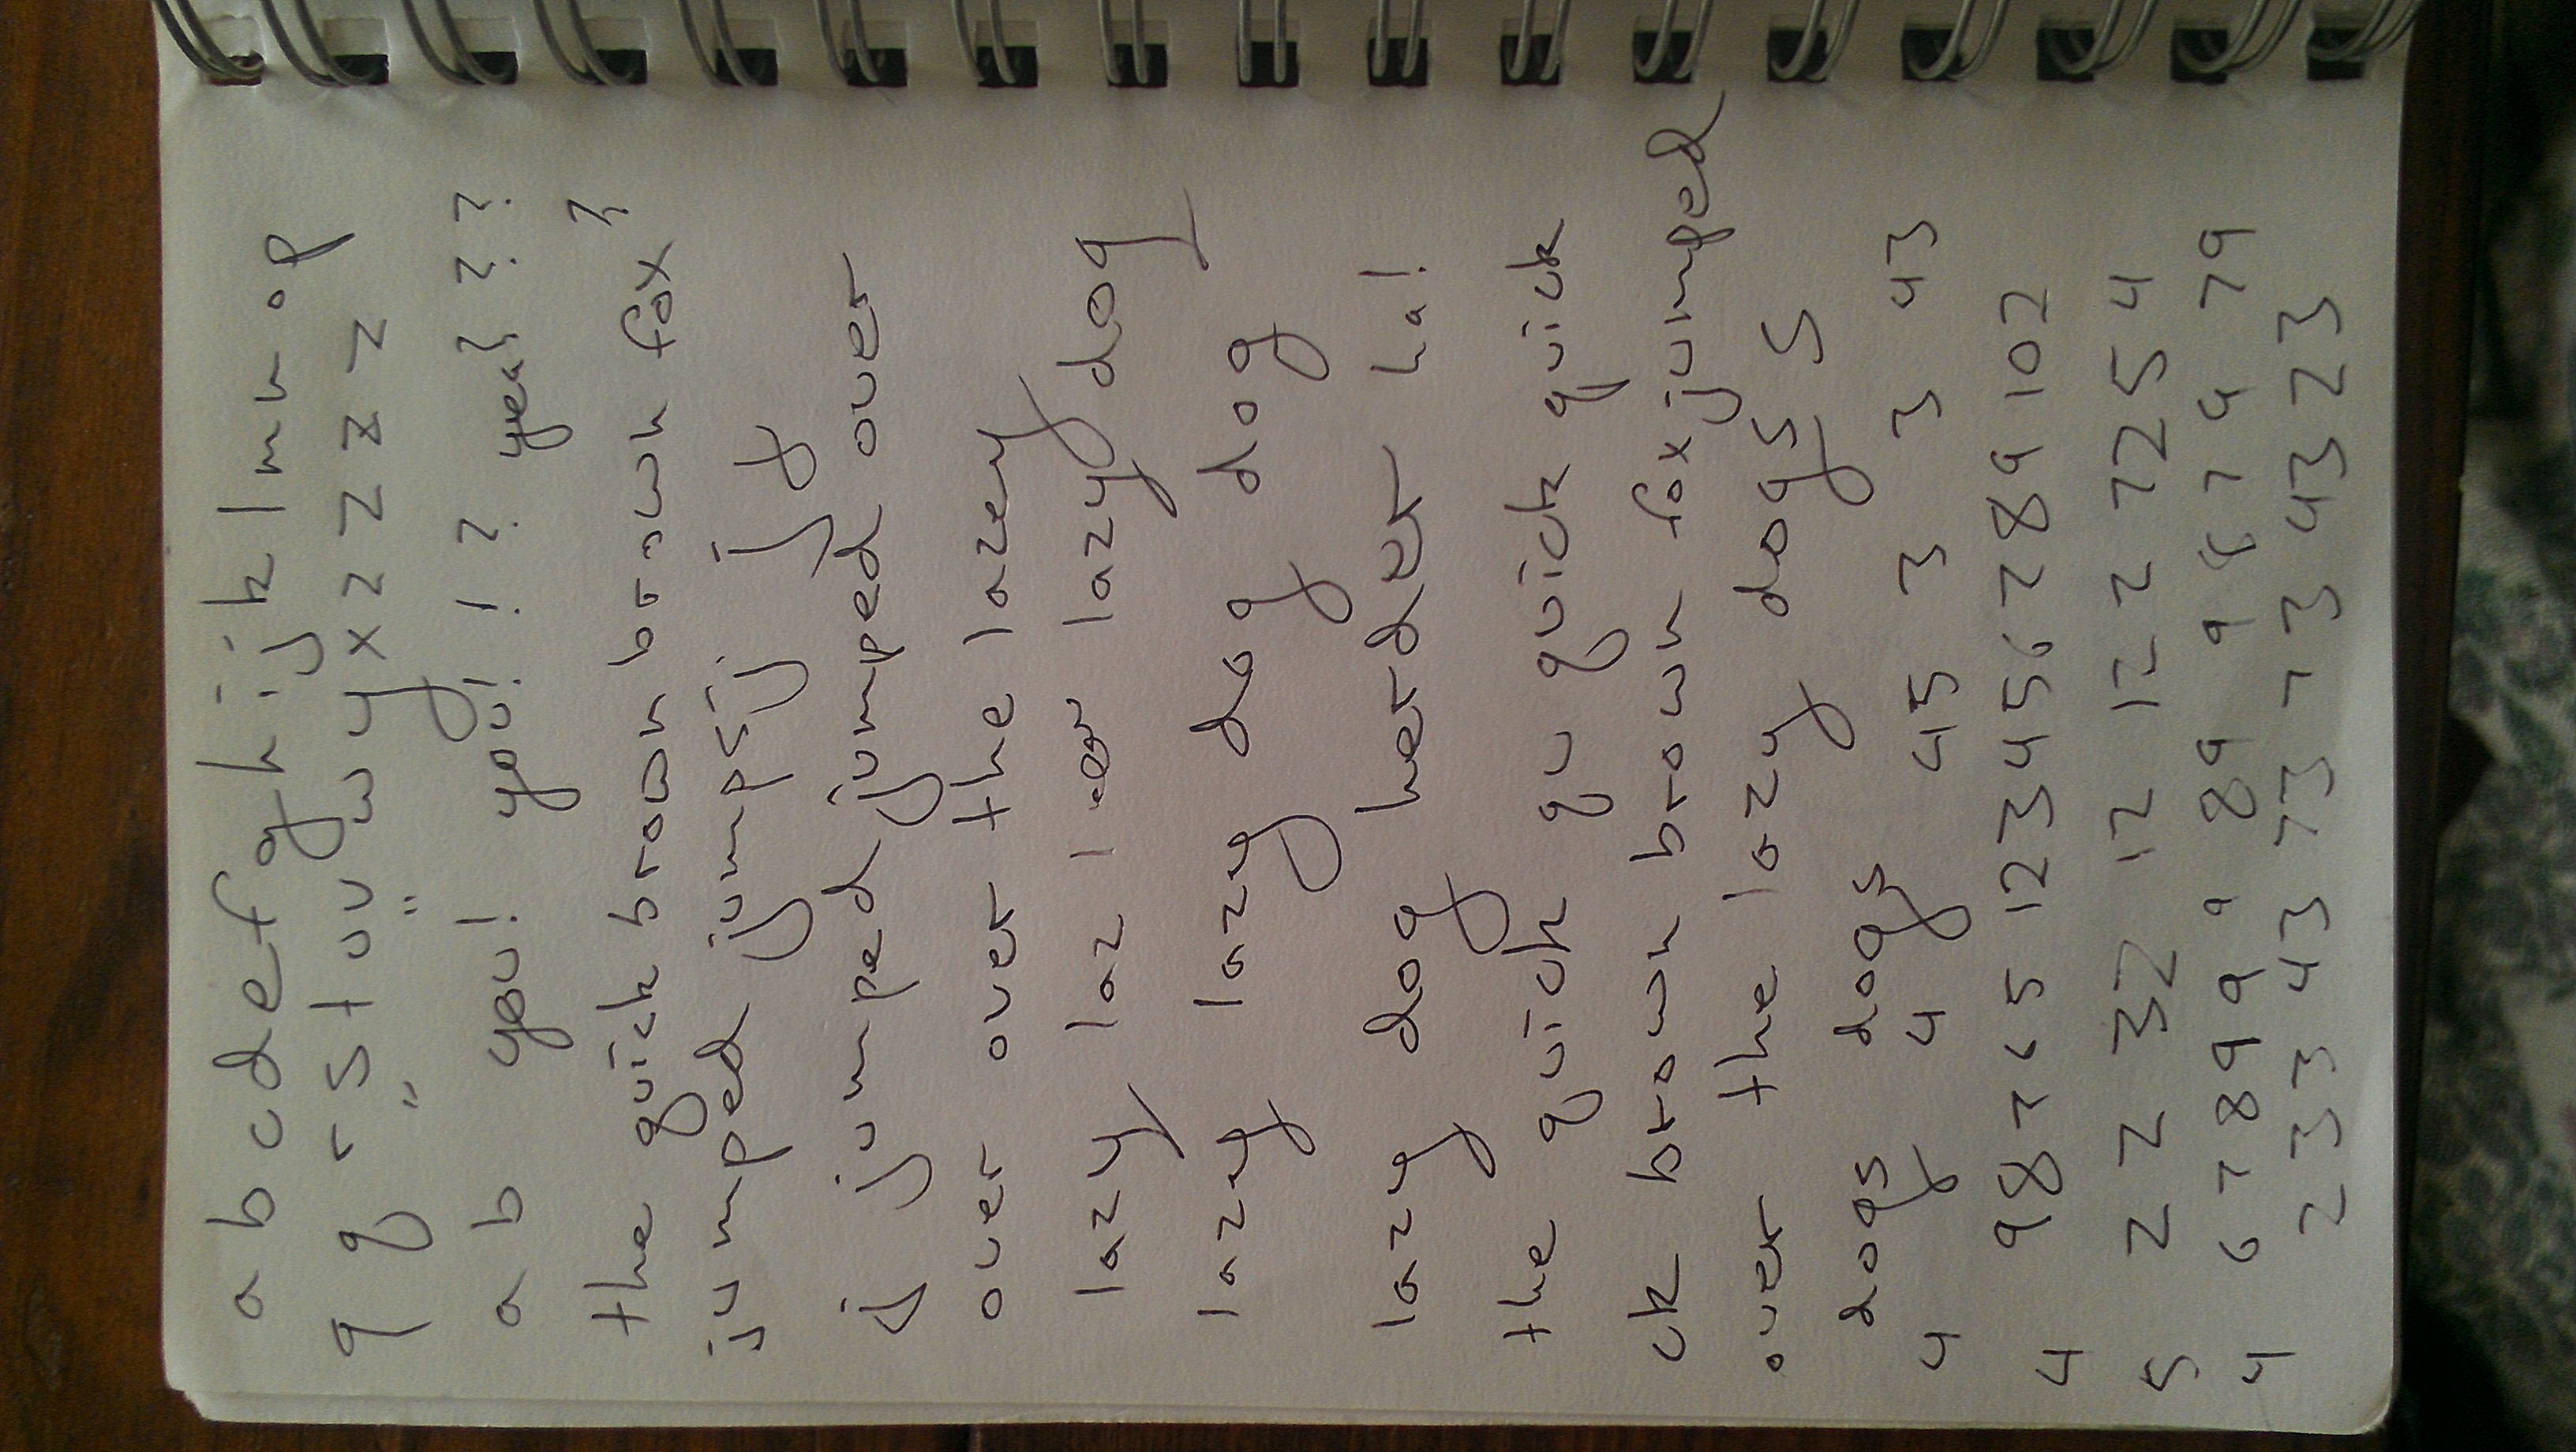 a b c d e f g h i j k l m n o p
q q r s t u v w y x z z z z
" "
a b you! you! ! ? yeah ? ? ?
the quick brown brown fox ?
jumped jumpsij j J
j jumped jumped over
over over the lazey
lazy laz l lazy dog
lazy lazy dog dog
lazy dog herder ha!
the quick qu quick quick
ck brown brown fox jumped
over the lazy dogs S
dogs dogs
4 4 45 3 3 43
4 98765 12345678910 2
5 2 2 32 12 12 2 7254
4 678999 89 98 74 79
233 43 73 73 4323